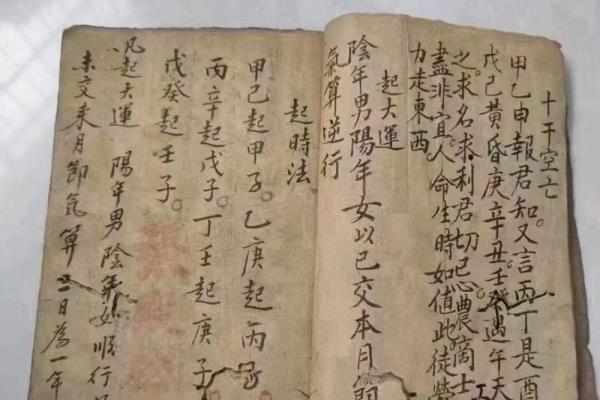 十干空亡
甲乙申報君知。又言丙丁是酉
戊己黃昏庚辛丑。壬癸遇午天
之。求名求利君切忌。農商士
盡非宜。人命生時如值此徒勞
力走東西
起大運
陰年男陽年女以已交本月節
氣算逆行
起時法
甲己起甲子。乙庚起丙子
丙辛起戊子。丁壬起庚子
戊癸起壬子。
凡起大運 陽年男陰年女順行
未交來月節氣算三日為一年